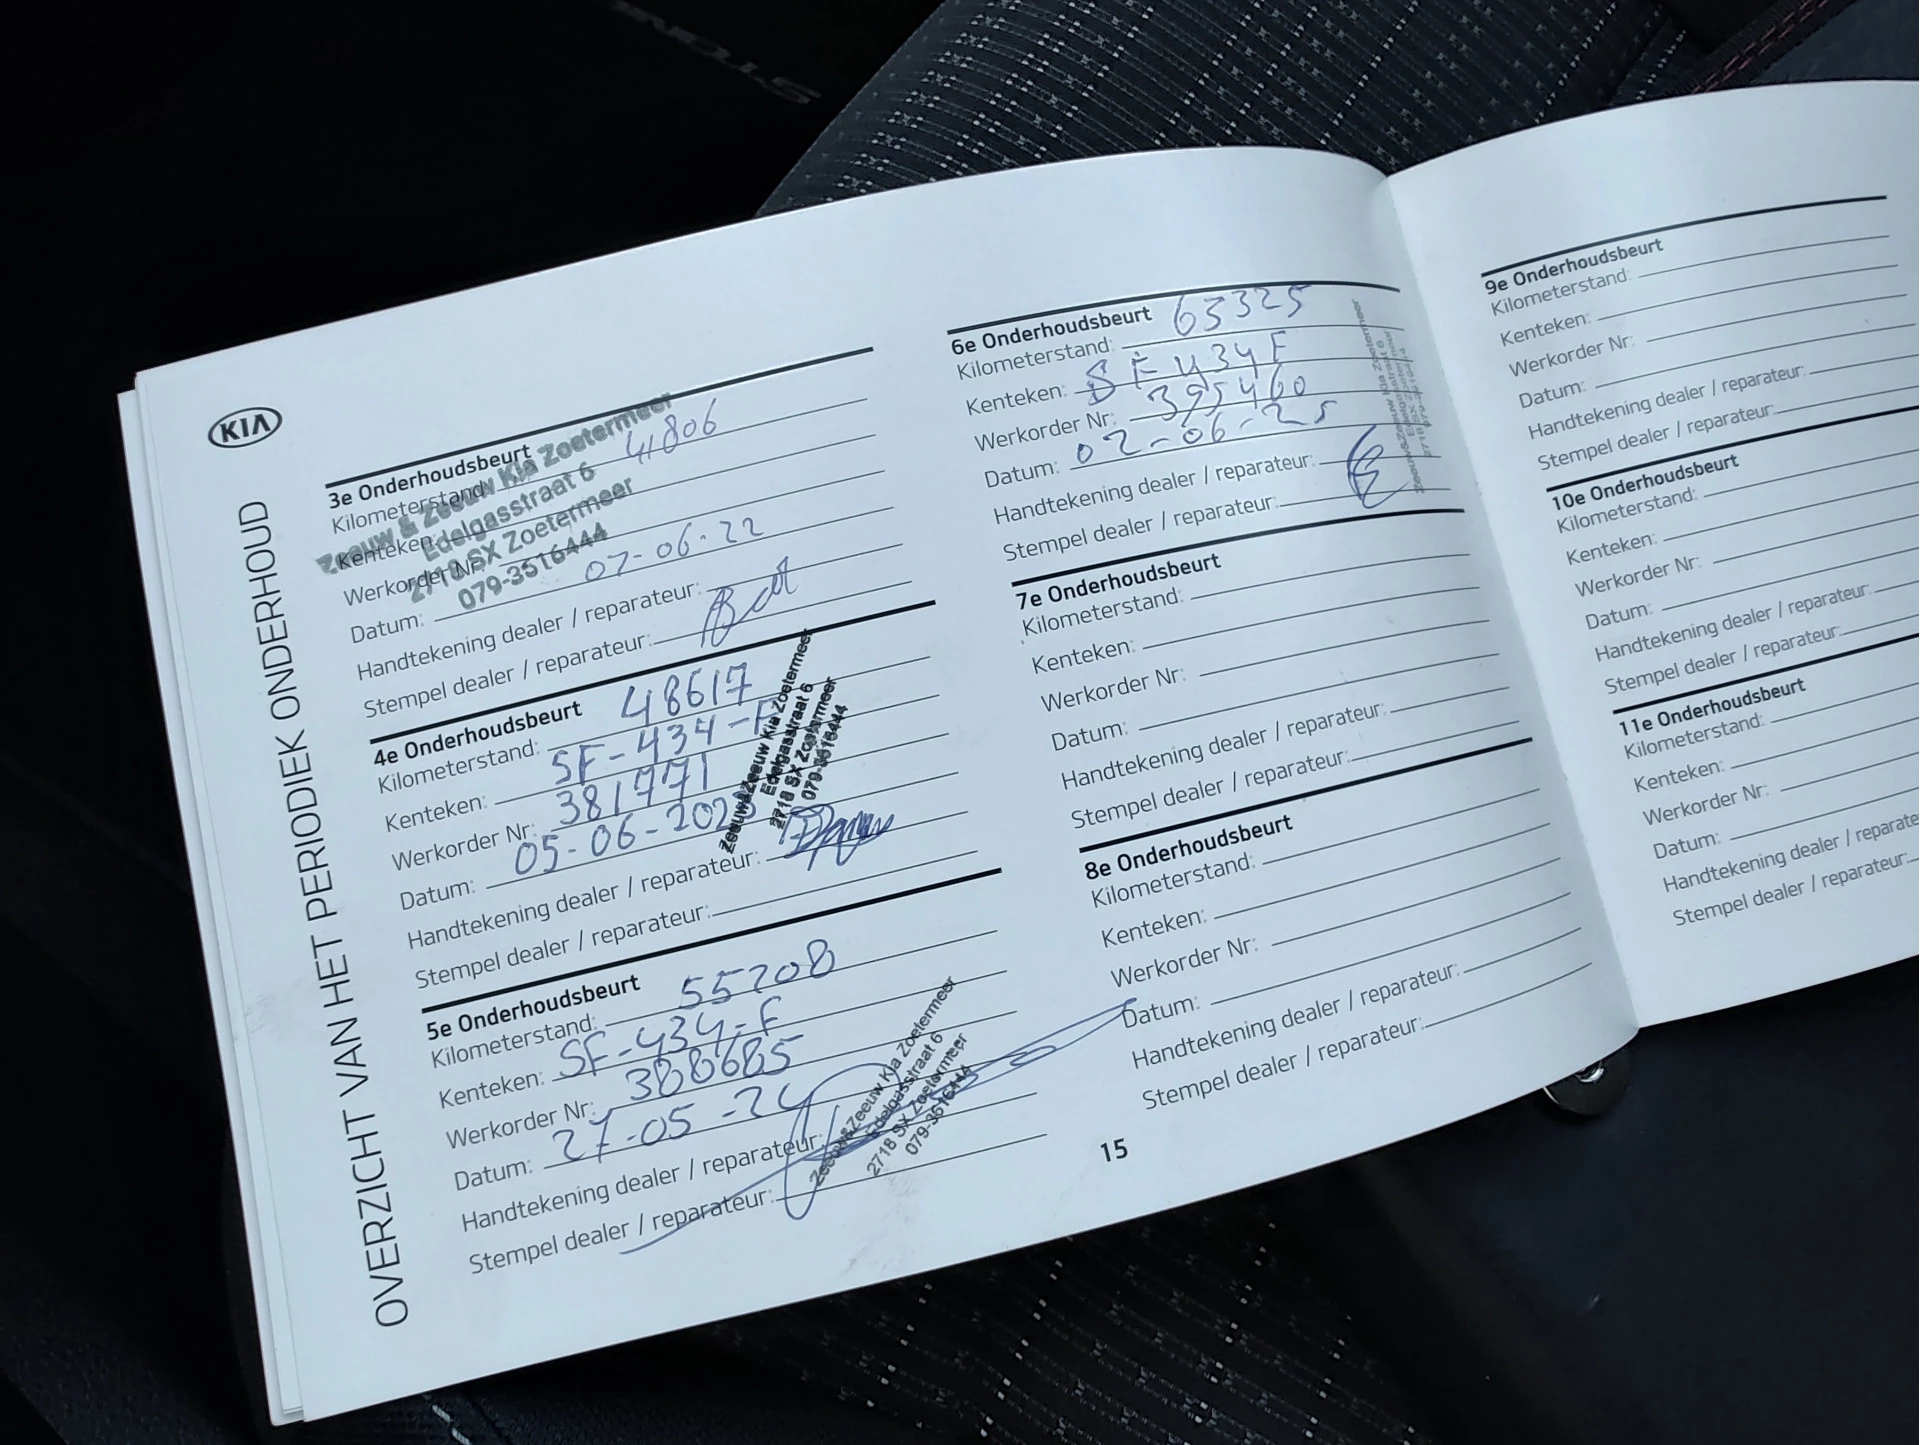 STONIC
KIA
OVERZICHT VAN HET PERIODIEK ONDERHOUD
3e Onderhoudsbeurt
Kilometerstand: 41806
Kenteken:
Werkorder Nr:
Datum: 07-06-22
Handtekening dealer / reparateur:
Stempel dealer / reparateur:
Zeeuw & Zeeuw Kia Zoetermeer
Edelgasstraat 6
2718 SX Zoetermeer
079-3516444
4e Onderhoudsbeurt
Kilometerstand: 48617
Kenteken: SF-434-F
Werkorder Nr: 381771
Datum: 05-06-2023
Handtekening dealer / reparateur:
Stempel dealer / reparateur:
Zeeuw&Zeeuw Kia Zoetermeer
Edelgasstraat 6
2718 SX Zoetermeer
079-3516444
5e Onderhoudsbeurt
Kilometerstand: 55208
Kenteken: SF-434-F
Werkorder Nr: 388685
Datum: 27-05-24
Handtekening dealer / reparateur:
Stempel dealer / reparateur:
Zeeuw&Zeeuw Kia Zoetermeer
Edelgasstraat 6
2718 SX Zoetermeer
079-3516444
6e Onderhoudsbeurt
Kilometerstand: 63325
Kenteken: SF434F
Werkorder Nr: 395460
Datum: 02-06-25
Handtekening dealer / reparateur:
Stempel dealer / reparateur:
Zeeuw&Zeeuw Kia Zoetermeer
Edelgasstraat 6
7e Onderhoudsbeurt
Kilometerstand:
Kenteken:
Werkorder Nr:
Datum:
Handtekening dealer / reparateur:
Stempel dealer / reparateur:
8e Onderhoudsbeurt
Kilometerstand:
Kenteken:
Werkorder Nr:
Datum:
Handtekening dealer / reparateur:
Stempel dealer / reparateur:
15
9e Onderhoudsbeurt
Kilometerstand:
Kenteken:
Werkorder Nr:
Datum:
Handtekening dealer / reparateur:
Stempel dealer / reparateur:
10e Onderhoudsbeurt
Kilometerstand:
Kenteken:
Werkorder Nr:
Datum:
Handtekening dealer / reparateur:
Stempel dealer / reparateur:
11e Onderhoudsbeurt
Kilometerstand:
Kenteken:
Werkorder Nr:
Datum:
Handtekening dealer / reparate
Stempel dealer / reparateur: